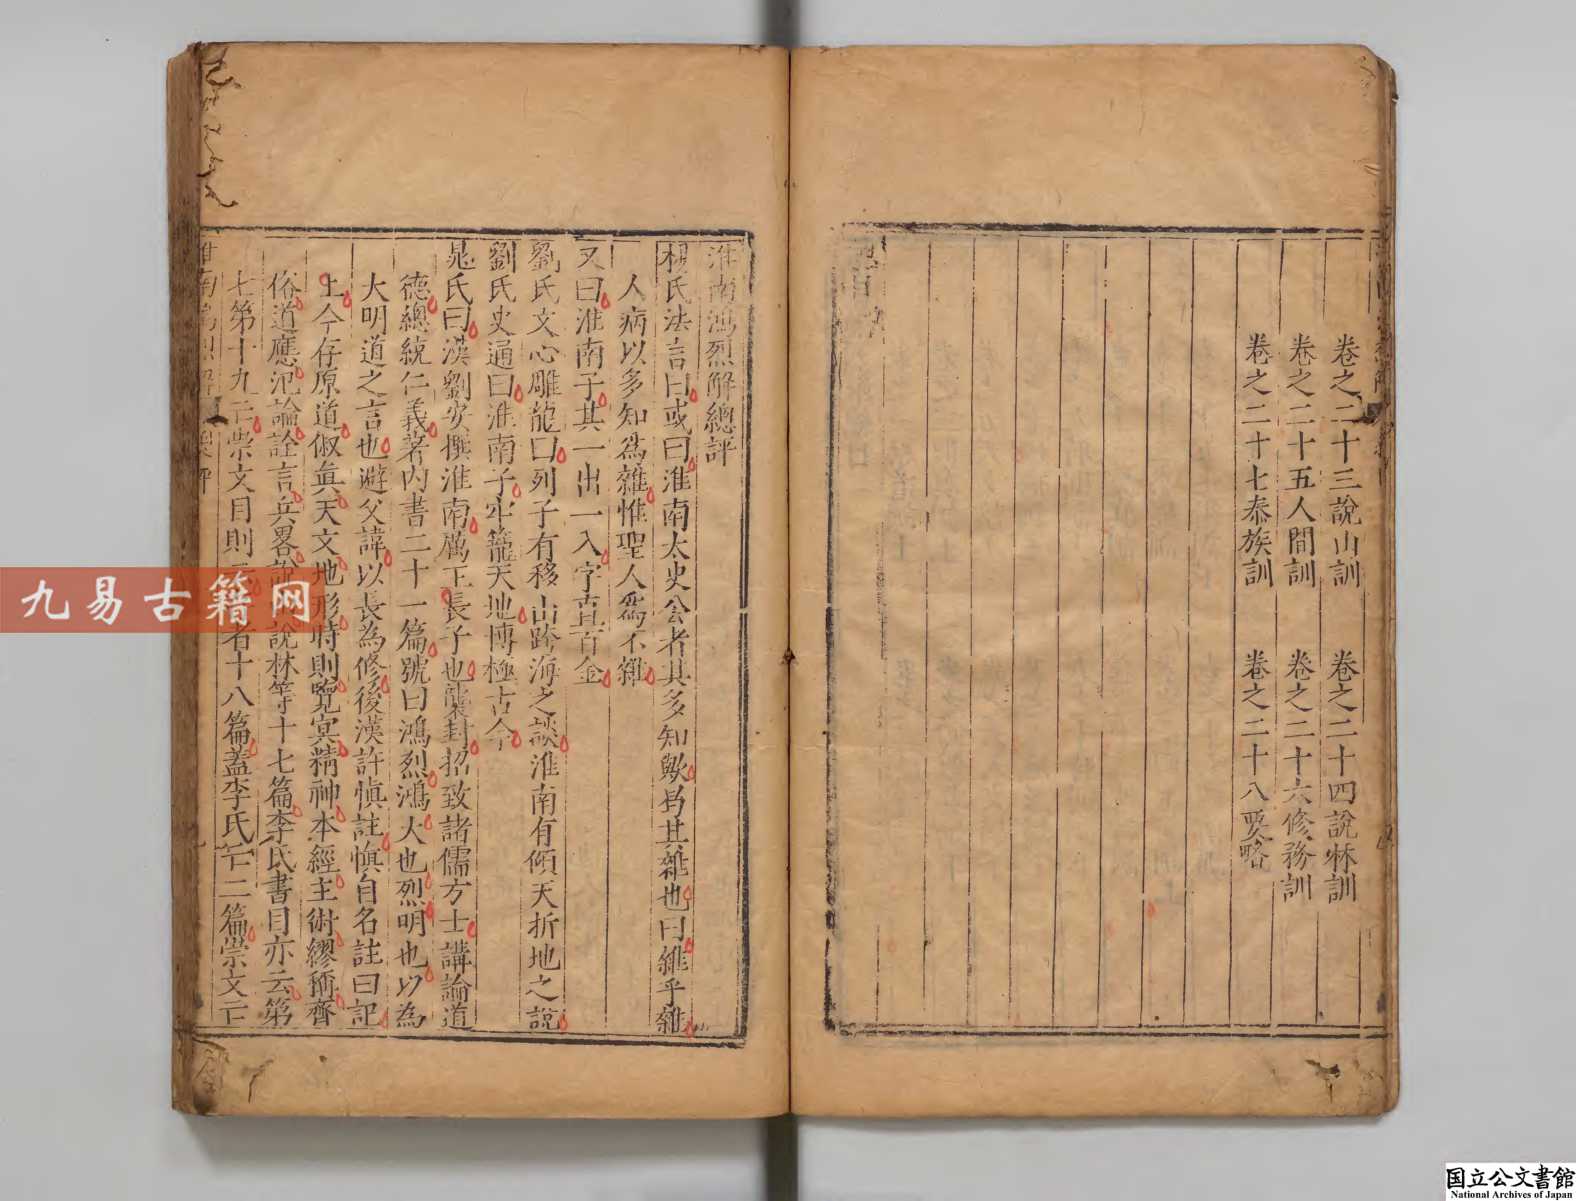 卷之二十三說山訓　卷之二十四說林訓
卷之二十五人間訓　卷之二十六修務訓
卷之二十七泰族訓　卷之二十八要略
淮南鴻烈解總評
楊氏法言曰或曰淮南太史公者其多知歟曷其雜也曰雜乎雜
人病以多知為雜惟聖人為不雜
又曰淮南子其一出一入字直百金
劉氏文心雕龍曰列子有移山跨海之談淮南有傾天折地之說
劉氏史通曰淮南子牢籠天地博極古今
晁氏曰漢劉安撰淮南厲王長子也襲封招致諸儒方士講論道
德總統仁義著內書二十一篇號曰鴻烈鴻大也烈明也以為
大明道之言也避父諱以長為修後漢許慎註慎自名註曰記
上今存原道俶真天文地形時則覽冥精神本經主術繆稱齊
俗道應氾論詮言兵畧說山說林等十七篇李氏書目亦云第
七第十九亡崇文目則云存者十八篇蓋李氏亡二篇崇文亡
淮南鴻烈解 總評
九易古籍网
国立公文書館
National Archives of Japan